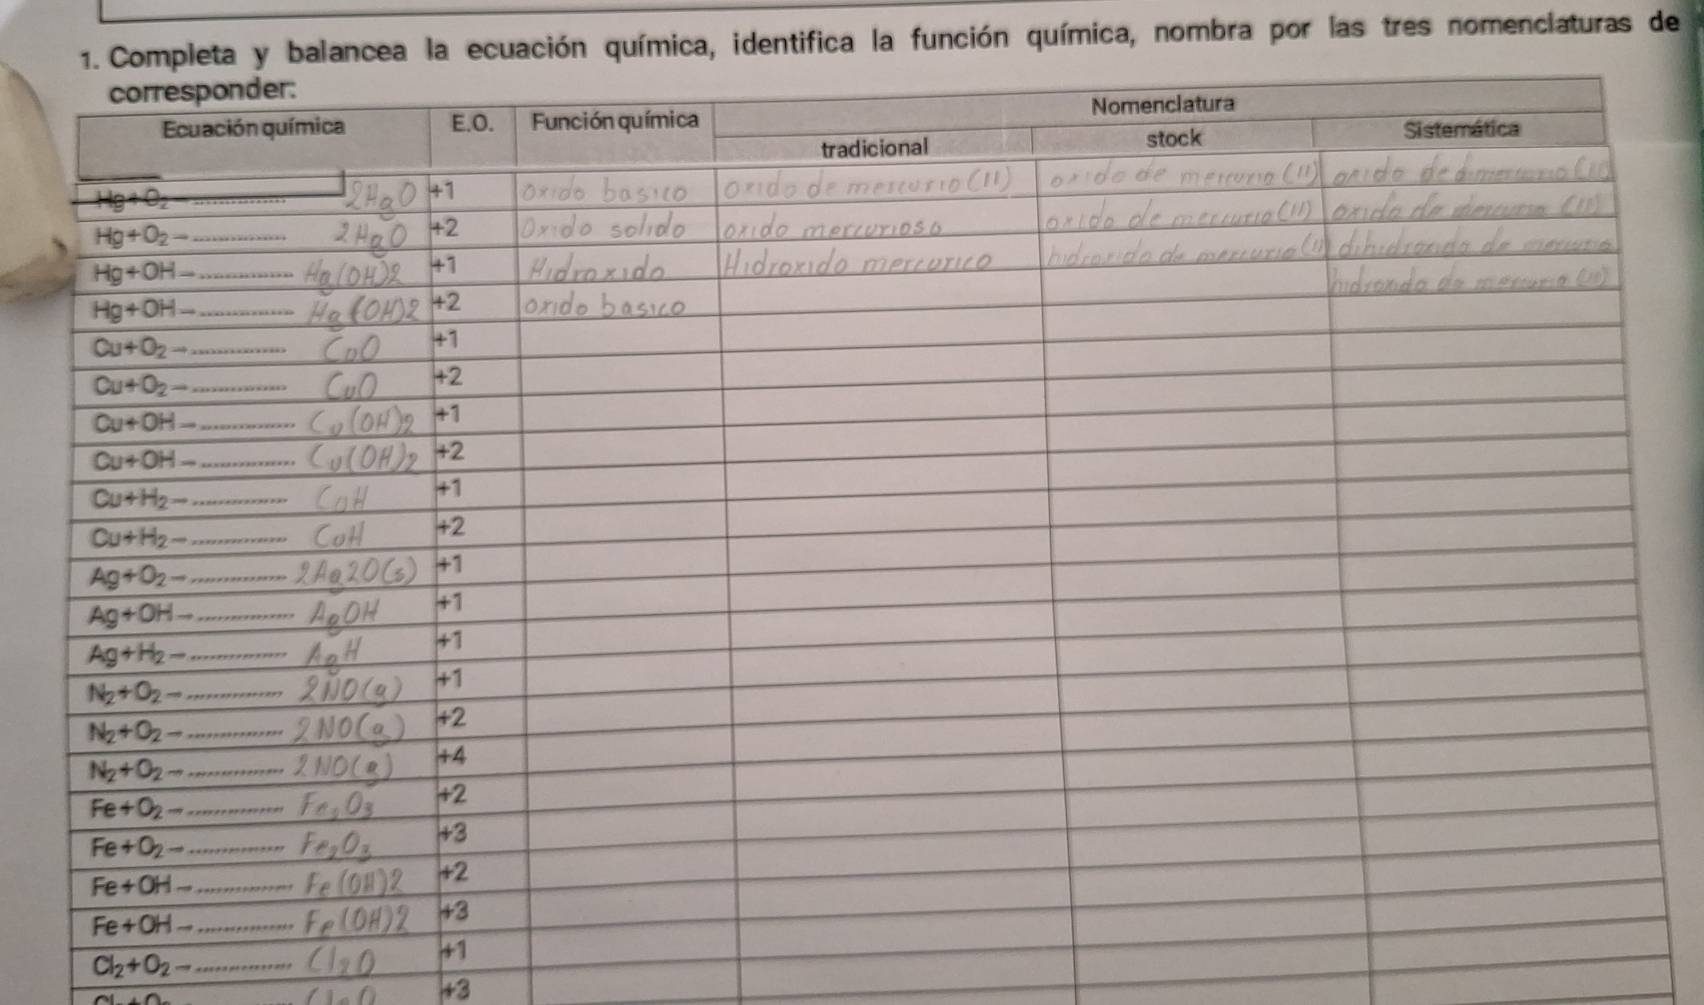 1. Completa y balancea la ecuación química, identifica la función química, nombra por las tres nomenclaturas de
corresponder:
Ecuación química E.O. Función química Nomenclatura
tradicional stock Sistemática
Hg+O₂→............... 2HgO +1 oxido basico oxido de mercurio (11) oxido de mercurio (11) oxido de dimercurio
Hg+O₂→............... 2HgO +2 Oxido solido oxido mercurioso oxido de mercurio (11) oxido de mercurio (11)
Hg+OH→............... Hg(OH)2 +1 Hidroxido Hidroxido mercurico hidroxido de mercurio (11) dihidroxido de mercurio
Hg+OH→............... Hg(OH)2 +2 oxido basico hidroxido de mercurio (11)
Cu+O₂→............... CuO +1
Cu+O₂→............... CuO +2
Cu+OH→............... Cu(OH)2 +1
Cu+OH→............... Cu(OH)2 +2
Cu+H₂→............... CuH +1
Cu+H₂→............... CuH +2
Ag+O₂→............... 2Ag2O(s) +1
Ag+OH→............... AgOH +1
Ag+H₂→............... AgH +1
N₂+O₂→............... 2NO(g) +1
N₂+O₂→............... 2NO(g) +2
N₂+O₂→............... 2NO(g) +4
Fe+O₂→............... Fe₂O₃ +2
Fe+O₂→............... Fe₂O₃ +3
Fe+OH→............... Fe(OH)2 +2
Fe+OH→............... Fe(OH)2 +3
Cl₂+O₂→............... Cl2O +1
+3